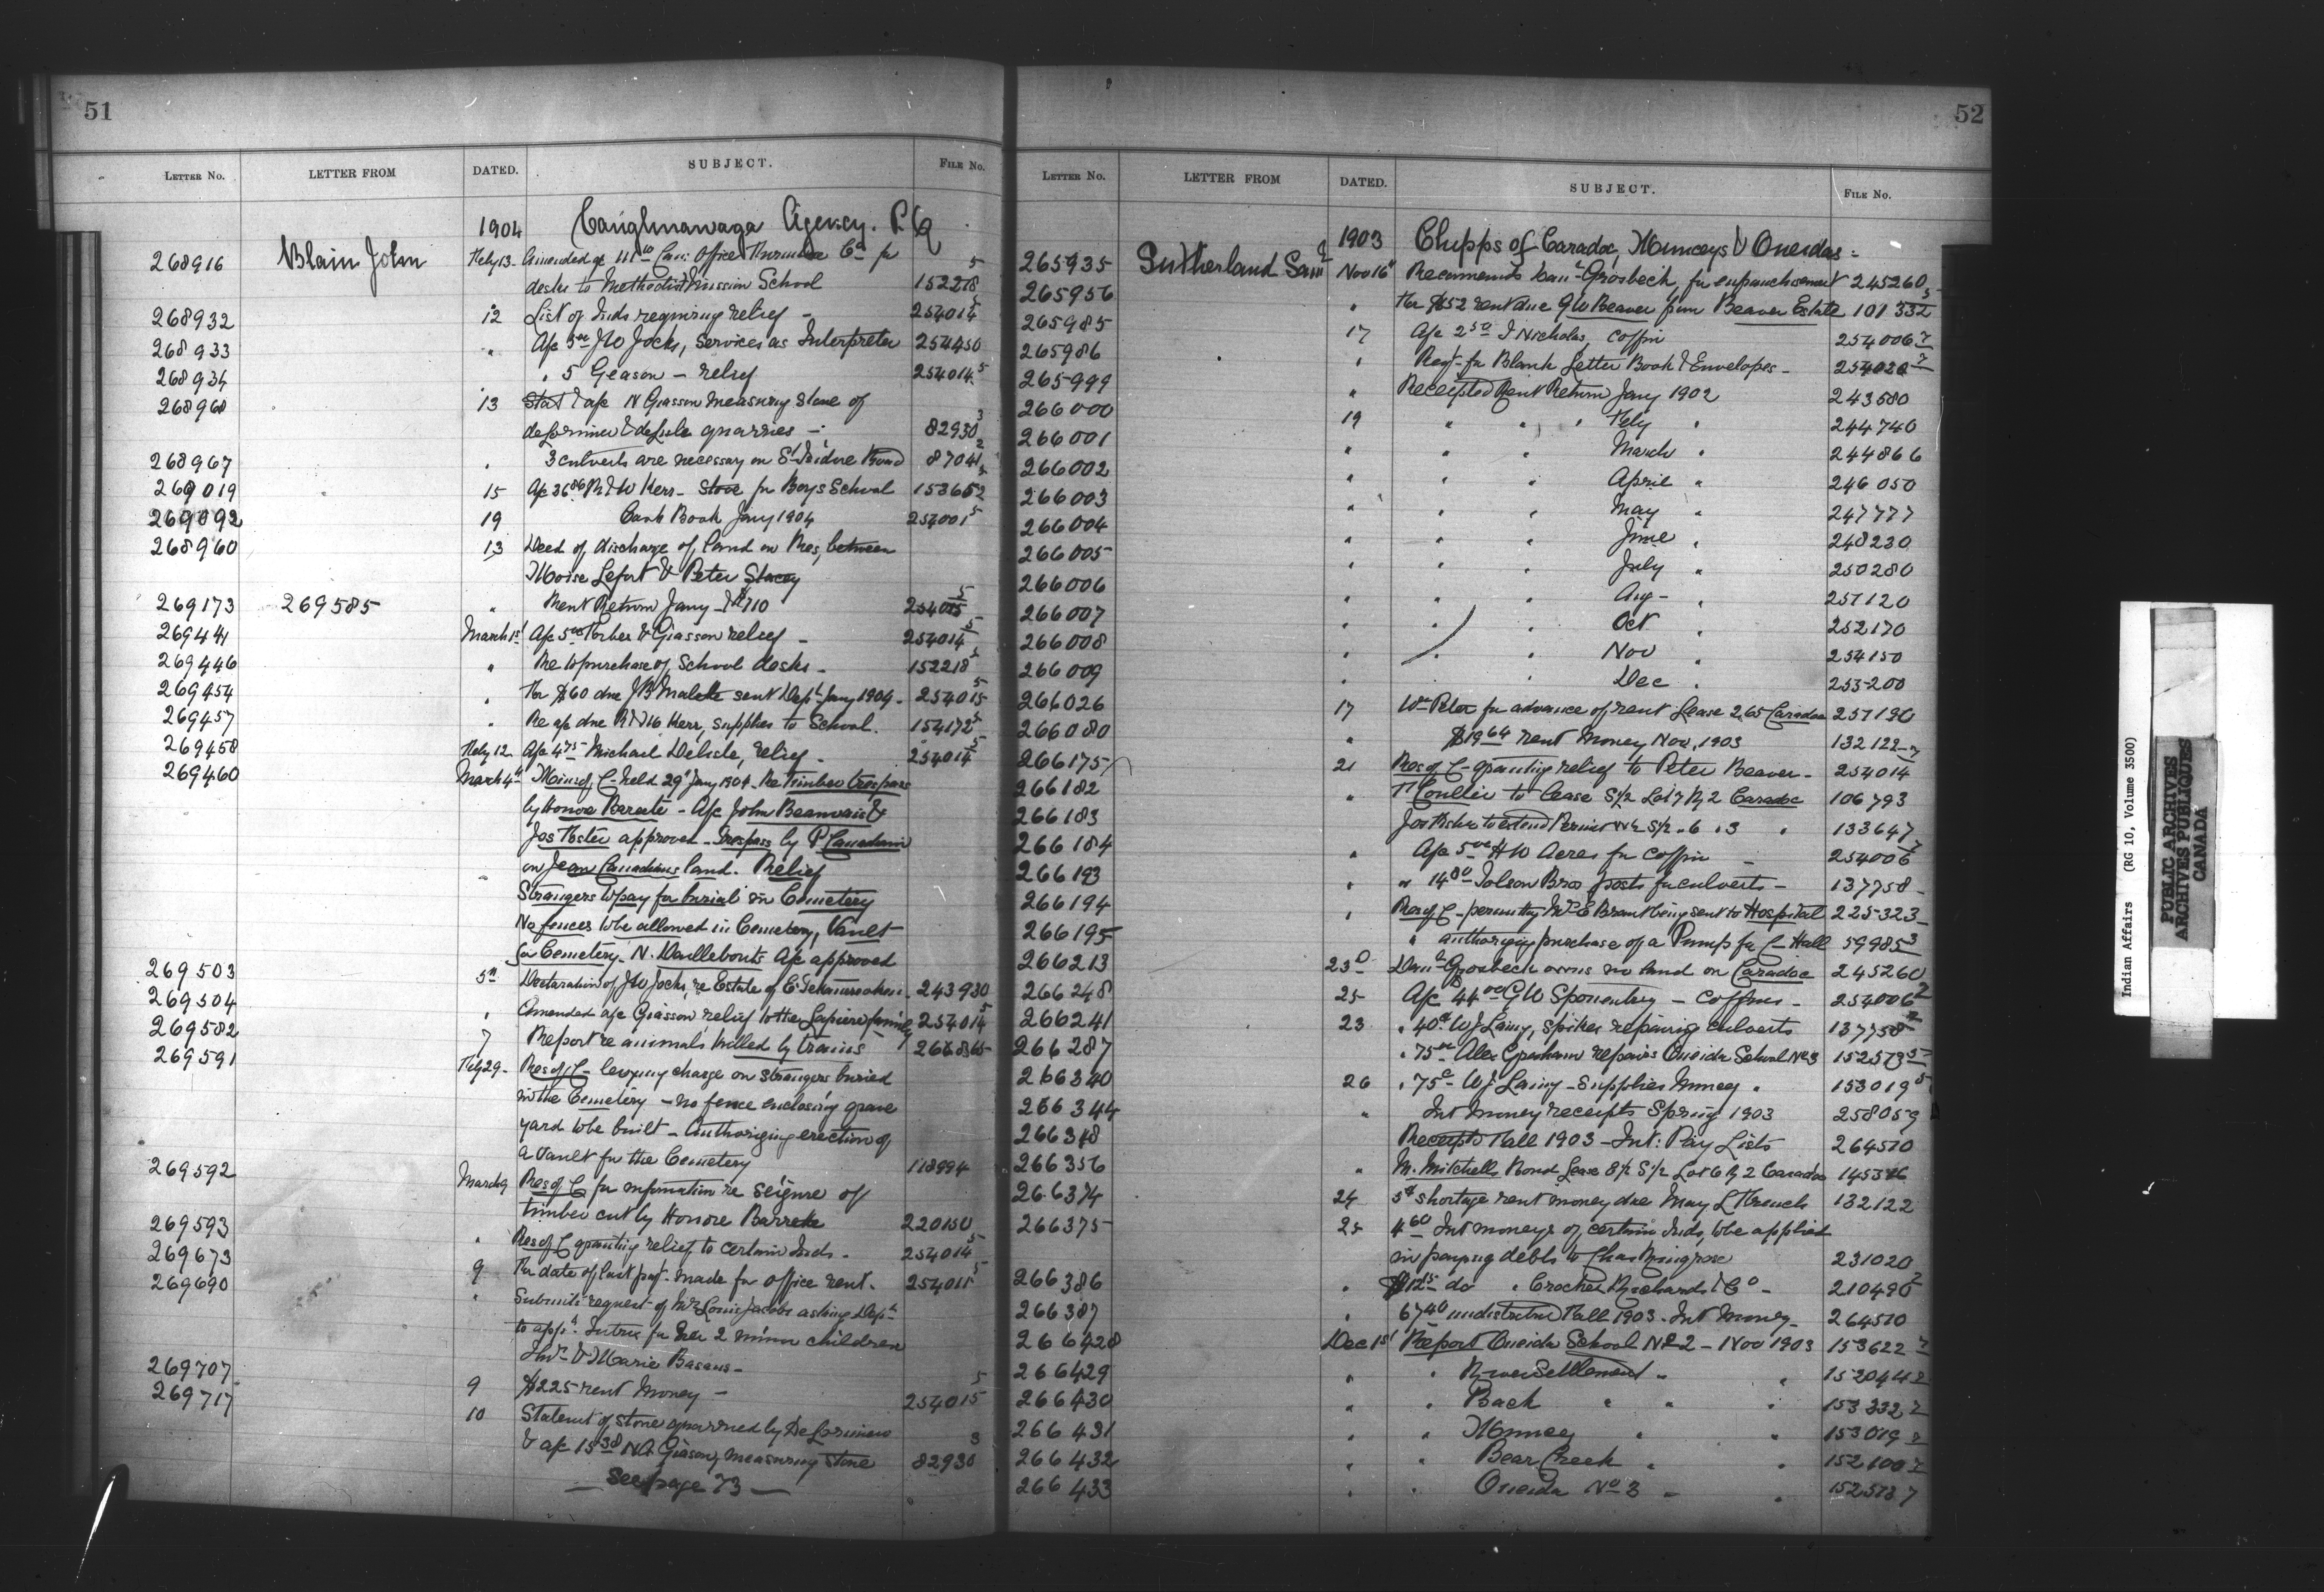 51
LETTER NO. LETTER FROM DATED. SUBJECT. FILE NO.
1904 Caughnawaga Agency. P.Q
268916 Blain John Feby 13 Amended a/c Office Co for
desks to Methodist Mission School 152218 5
268932 12 List of Inds requiring relief - 254014 5
268933 " A/c 3 00 JW Jocks, Services as Interpreter 254450
268934 " 5 Geason - relief 254014 5
268960 13 Stat & a/c N Giasson measuring stone of
delorimier & delisle quarries - 82930 3
268967 " 3 culverts are necessary on St Isidore Road 87041 2
269019 15 A/c 36 86 R & W Kerr - Stove for Boys School 153652
269092 19 Cash Book Jany 1904 254001 5
268960 13 Deed of discharge of land on Res, between
Moise Lefort & Peter Stacey
269173 269585 " Rent Return Jany - 710 254015 5
269441 March 1st A/c 5 00 & Giasson relief - 254014 5
269446 " Re to purchase of School desks - 152218 5
269454 " For $60 due JB Mailette sent Dept Jany 1904 - 254015 5
269457 " Re a/c due Kerr, supplies to School. 154172 5
269458 Feby 12 A/c 4 75 Michael Delisle, relief - 254014 5
269460 March 4th Mins of C - held 29th Jany 1904. Re timber trespass
by Honore Barrette - A/c John Beauvais &
Jos Foster approved - Trespass by P Canadian
on Jean Canadians land. Relief
Strangers to pay for burial in Cemetery
No fences to be allowed in Cemetery, Vault
for Cemetery - N. Daillebouts A/c approved
269503 5th Declaration of JW Jocks, re Estate of 243930
269504 " Amended a/c Giasson relief to the Lapiere family 254014 5
269582 7 Report re animals killed by trains 266865
269591 Feby 29 - Res of C - levying charge on strangers buried
in the Cemetery - no fence enclosing grave
yard to be built - Authorizing erection of
a Vault for the Cemetery 118994
269592 March 9 Res of C for information re seizure of
timber cut by Honore Barrette 220150
269593 " Res of C granting relief to certain Inds - 254014 5
269673 9 For date of last pay't made for office rent. 254011 5
269690 " Submits request of Mrs Louis Jacobs asking Dept
to app't Tutrix for her 2 minor children
& Marie Basans -
269707 9 $225 rent money - 254015 5
269717 10 Statem't of stone quarried by Delorimier
& a/c 15 38 NA Giasson, measuring stone 82930 3
- See page 73 -
52
LETTER NO. LETTER FROM DATED. SUBJECT. FILE NO.
1903 Chipps of Caradoc, Munceys & Oneidas -
265935 Sutherland Saml Nov 16th Recommends Danl Grosbeck for enfranchisement 245260
265956 " For $52 rent due GW Beaver from Beaver Estate 101332 3
265985 17 A/c 2 50 J Nicholas, coffin 254006 7
265986 " Req - for Blank Letter Book & Envelopes - 254020 7
265999 " Receipted Rent Return Jany 1902 243580
266000 19 " " " Feby " 244740
266001 " " " March " 244866
266002 " " " April " 246050
266003 " " " May " 247777
266004 " " " June " 248230
266005 " " " July " 250280
266006 " " " Aug - " 251120
266007 " " " Oct " 252170
266008 " " " Nov " 254150
266009 " Dec " 253200
266026 17 Wm Peter for advance of rent Lease 265 Caradoc 251190
266080 " $19 64 rent Money Nov, 1903 132122
266175 21 Res of C - granting relief to Peter Beaver - 254014 7
266182 " T Coullin to lease S½ Lot 7 R 2 Caradoc 106793
266183 Jos Fisher to extend Permit S½ " 6 " 3 " 133647
266184 " A/c 5 00 HW Acres for coffin - 254006 7
266193 " " 14 80 Tolson Bros posts for culverts - 137758
266194 " Res of C - permitting Mrs E Brant being sent to Hospital 225323
266195 " authorizing purchase of a Pump for C - Hall 59985 3
266213 23d Danl Grosbeck owns no land on Caradoc 245260
266248 25 A/c 44 00 GW Sponenburg - coffins - 254006 7
266241 23 " 40c WJ Laing, spikes repairing culverts 137758 2
266287 " 75 00 Alex Graham repairs Oneida School No 3 152573 5
266340 26 " 75c - WJ Laing - supplies Muncey " 153019 5
266344 " Int Money receipts Spring 1903 258059
266348 Receipts Fall 1903 - Int: Pay Lists 264510
266356 " M. Mitchells Bond Lease E½ S½ Lot 6 R 2 Caradoc 145376
266374 24 5c shortage rent money due May L French 132122
266375 25 4 60 Int moneys of certain Inds, to be applied
in paying debts to Chas Musgrove 231020
266386 " $12 do " Crocker Richards & Co - 210490 2
266387 " 67 40 undistributed Fall 1903 - Int Money - 264510
266428 Dec 1st Report Oneida School No 2 - Nov 1903 153622 7
266429 " " River Settlement " " 152044 2
266430 " " Back " " " 153332 2
266431 " " Muncey " " 153019 2
266432 " " Bear Creek " " 152100 2
266433 " " Oneida No 3 - " 152573 7
Indian Affairs (RG 10, Volume 3500)
PUBLIC ARCHIVES
ARCHIVES PUBLIQUES
CANADA